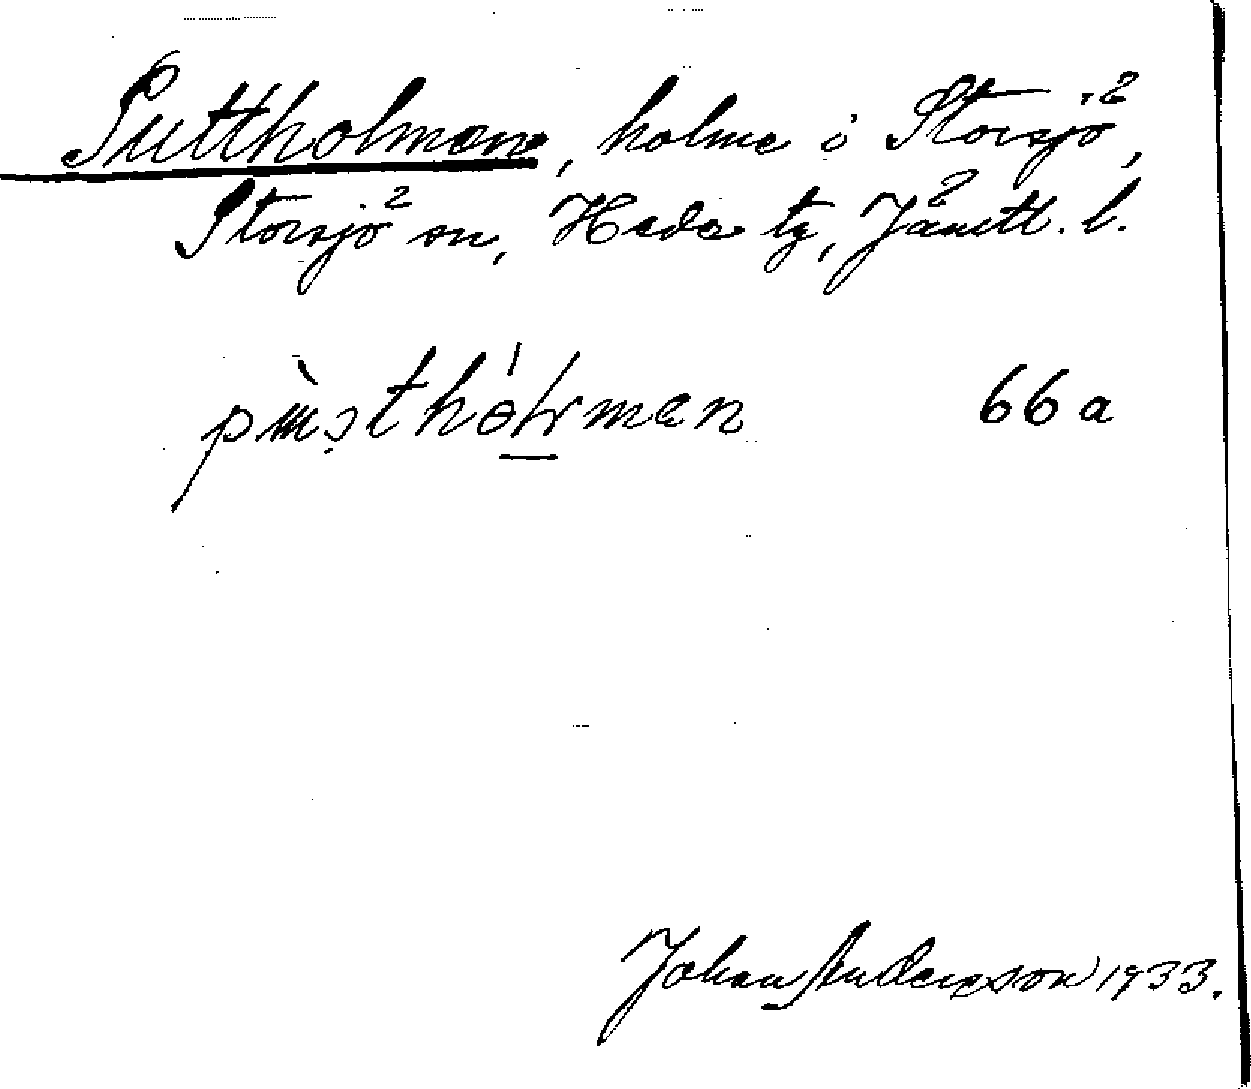 Puttholmen, holme i Storsjö,
Storsjö sn, Heds tg, Jämtl. l.
66 a
Johan Andersson 1933.